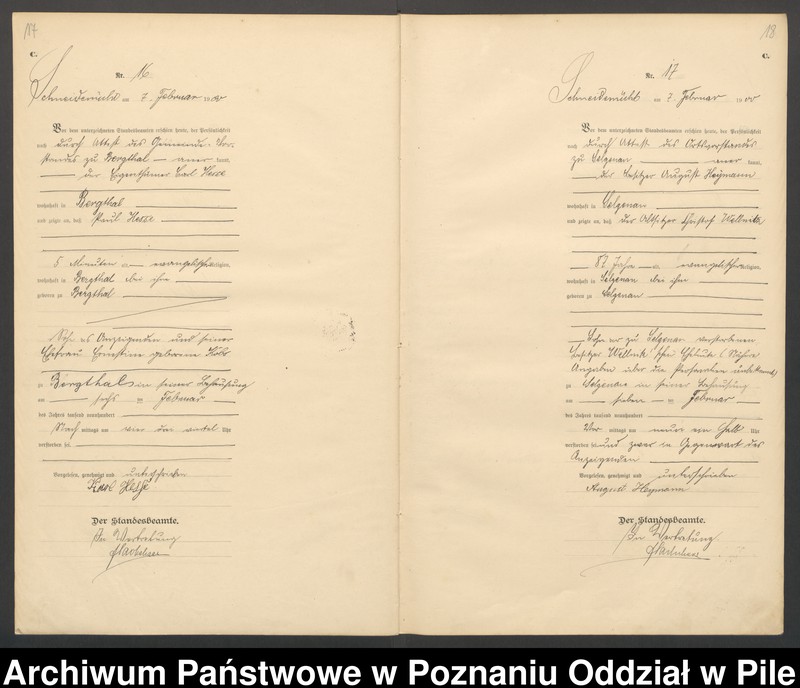 17
C.
Nr. 16
Schneidemühl am 7. Februar 1900
Vor dem unterzeichneten Standesbeamten erschien heute, der Persönlichkeit
nach durch Attest des Gemeinde-Vor-
standes zu Bergthal anerkannt,
der Eigenthümer Carl Hesse
wohnhaft in Bergthal
und zeigte an, daß Paul Hesse
5 Minuten evangelischer Religion,
wohnhaft in Bergthal bei ihm
geboren zu Bergthal
Sohn des Anzeigenden und seiner
Ehefrau Ernestine geborene
zu Bergthal in seiner Behausung
am sechs Februar
des Jahres tausend neunhundert
Nach mittags um vier drei viertel Uhr
verstorben sei.
Vorgelesen, genehmigt und unterschrieben
Karl Hesse
Der Standesbeamte.
In Vertretung
18
C.
Nr. 17
Schneidemühl am 7. Februar 1900
Vor dem unterzeichneten Standesbeamten erschien heute, der Persönlichkeit
nach durch Attest des Ortsvorstandes
zu Selgenau anerkannt,
der Besitzer August Heymann
wohnhaft in Selgenau
und zeigte an, daß der Altsitzer Christof Wellnitz
87 Jahr evangelischer Religion,
wohnhaft in Selgenau bei ihm
geboren zu Selgenau
Sohn der zu Selgenau verstorbenen
Besitzer Wellnitz'schen Eheleute (Nähere
Angaben über die Personalien unbekannt)
zu Selgenau in seiner Behausung
am sieben Februar
des Jahres tausend neunhundert
Vor mittags um neun ein halb Uhr
verstorben sei und zwar in Gegenwart des
Anzeigenden
Vorgelesen, genehmigt und unterschrieben
August Heymann
Der Standesbeamte.
In Vertretung
Archiwum Państwowe w Poznaniu Oddział w Pile